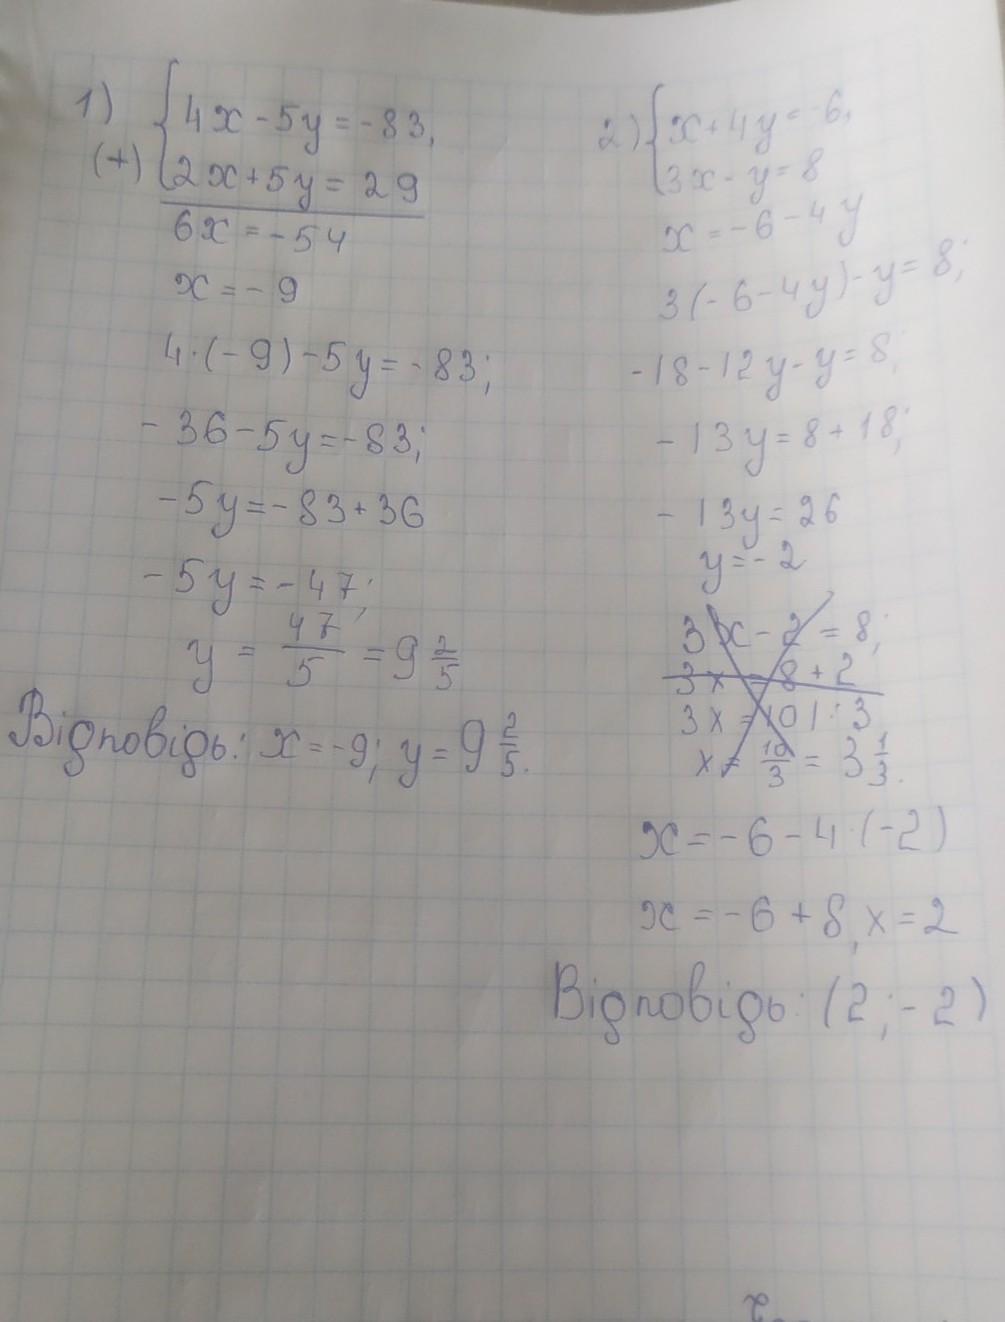 1) { 4x - 5y = -83,
(+) 2x + 5y = 29
6x = -54
x = -9
4·(-9) - 5y = -83;
-36 - 5y = -83;
-5y = -83 + 36
-5y = -47;
y = 47/5 = 9 2/5
Відповідь: x = -9; y = 9 2/5.
2) { x + 4y = -6,
3x - y = 8
x = -6 - 4y
3(-6 - 4y) - y = 8;
-18 - 12y - y = 8;
-13y = 8 + 18;
-13y = 26
y = -2
3x - 2 = 8;
3x = 8 + 2
3x = 10 | : 3
x = 10/3 = 3 1/3.
x = -6 - 4·(-2)
x = -6 + 8, x = 2
Відповідь: (2; -2)